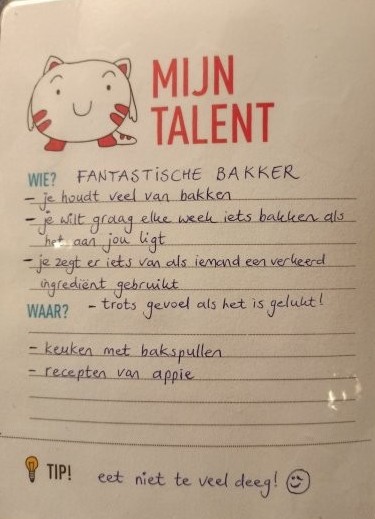 MIJN
TALENT
WIE? FANTASTISCHE BAKKER
- je houdt veel van bakken
- je wilt graag elke week iets bakken als
het aan jou ligt
- je zegt er iets van als iemand een verkeerd
ingrediënt gebruikt
WAAR? - trots gevoel als het is gelukt!
- keuken met bakspullen
- recepten van appie
TIP! eet niet te veel deeg!